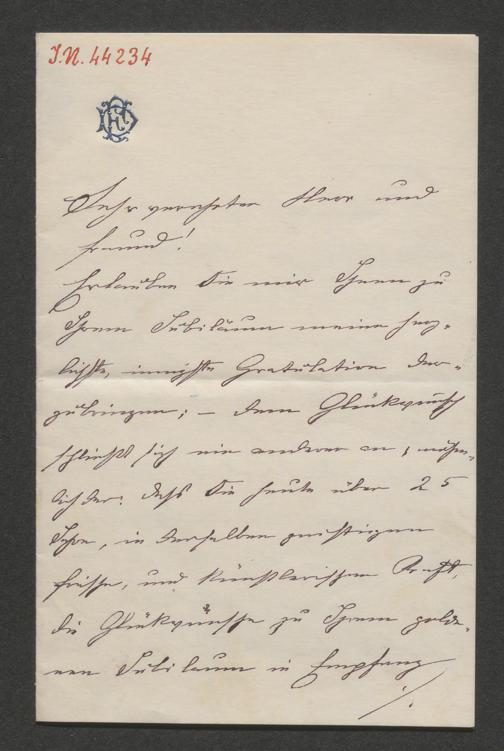 I.N. 44234
Sehr verehrter Herr und
Freund!
Erlauben Sie mir Ihnen zu
Ihrem Jubiläum meine herz-
lichste, innigste Gratulation dar-
zubringen; – dem Glückwunsch
schließt sich ein anderer an, näm-
lich der: daß Sie heute über 25
Jahre, in derselben geistigen
Frische, und künstlerischen Kraft,
die Glükwünsche zu Ihrem golde-
nen Jubiläum in Empfang
./.